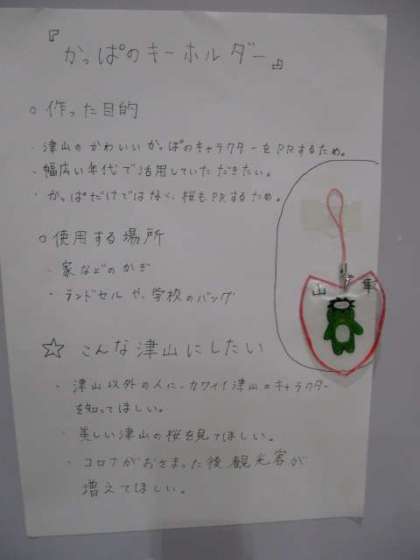 『かっぱのキーホルダー』
○ 作った目的
・津山のかわいいかっぱのキャラクターをPRするため。
・幅広い年代で活用していただきたい。
・かっぱだけではなく、桜もPRするため。
○ 使用する場所
・家などのかぎ
・ランドセルや、学校のバッグ
☆ こんな津山にしたい
・津山以外の人に、カワイイ津山のキャラクター
を知ってほしい。
・美しい津山の桜を見てほしい。
・コロナがおさまった後観光客が
増えてほしい。